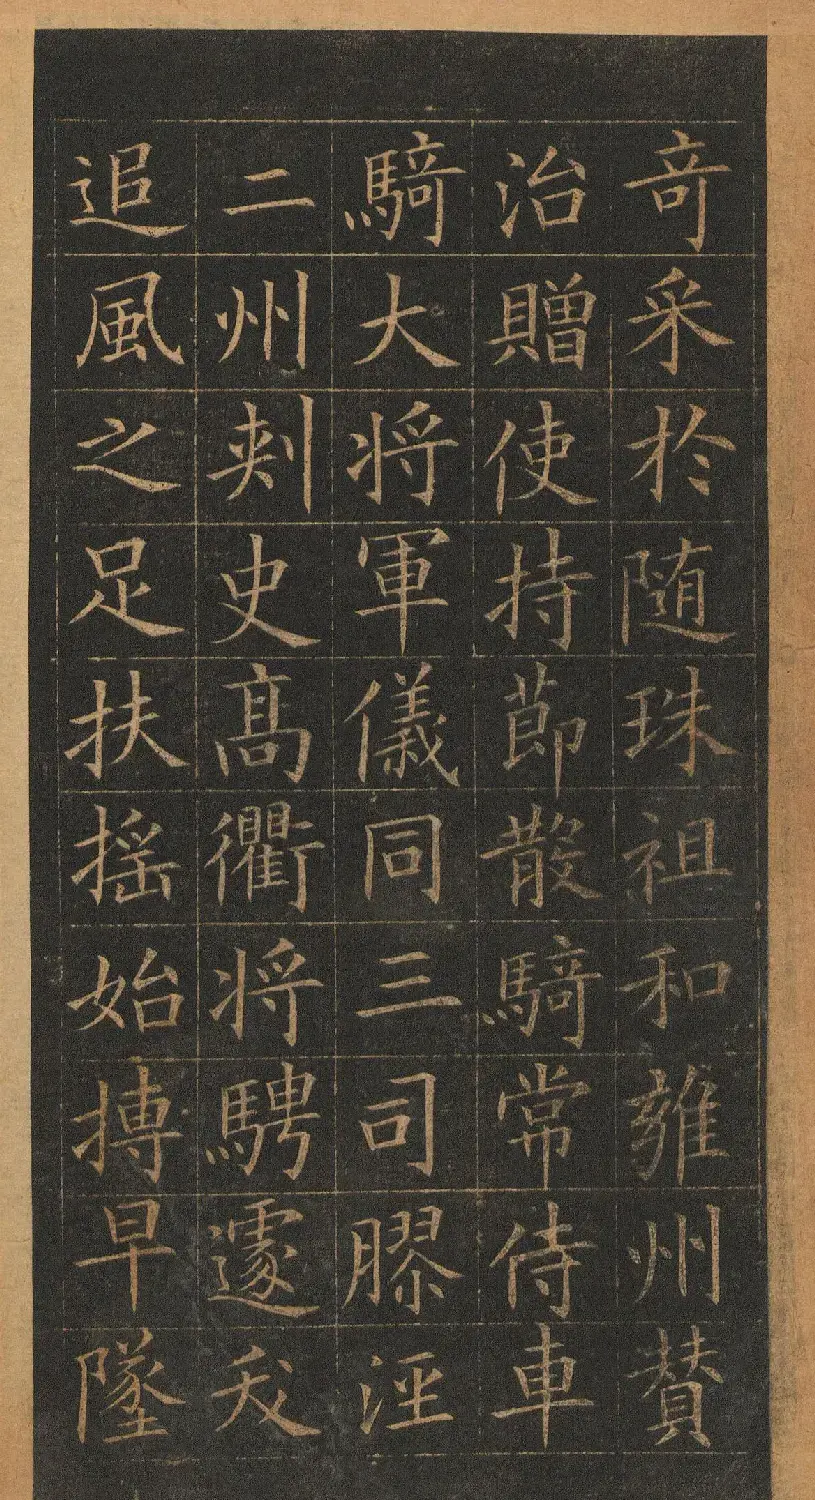 奇采於随珠祖和雍州賛
治贈使持莭散騎常侍車
騎大将軍儀同三司膠涇
二州刾史髙衢将騁遽夭
追風之足扶揺始搏早墜